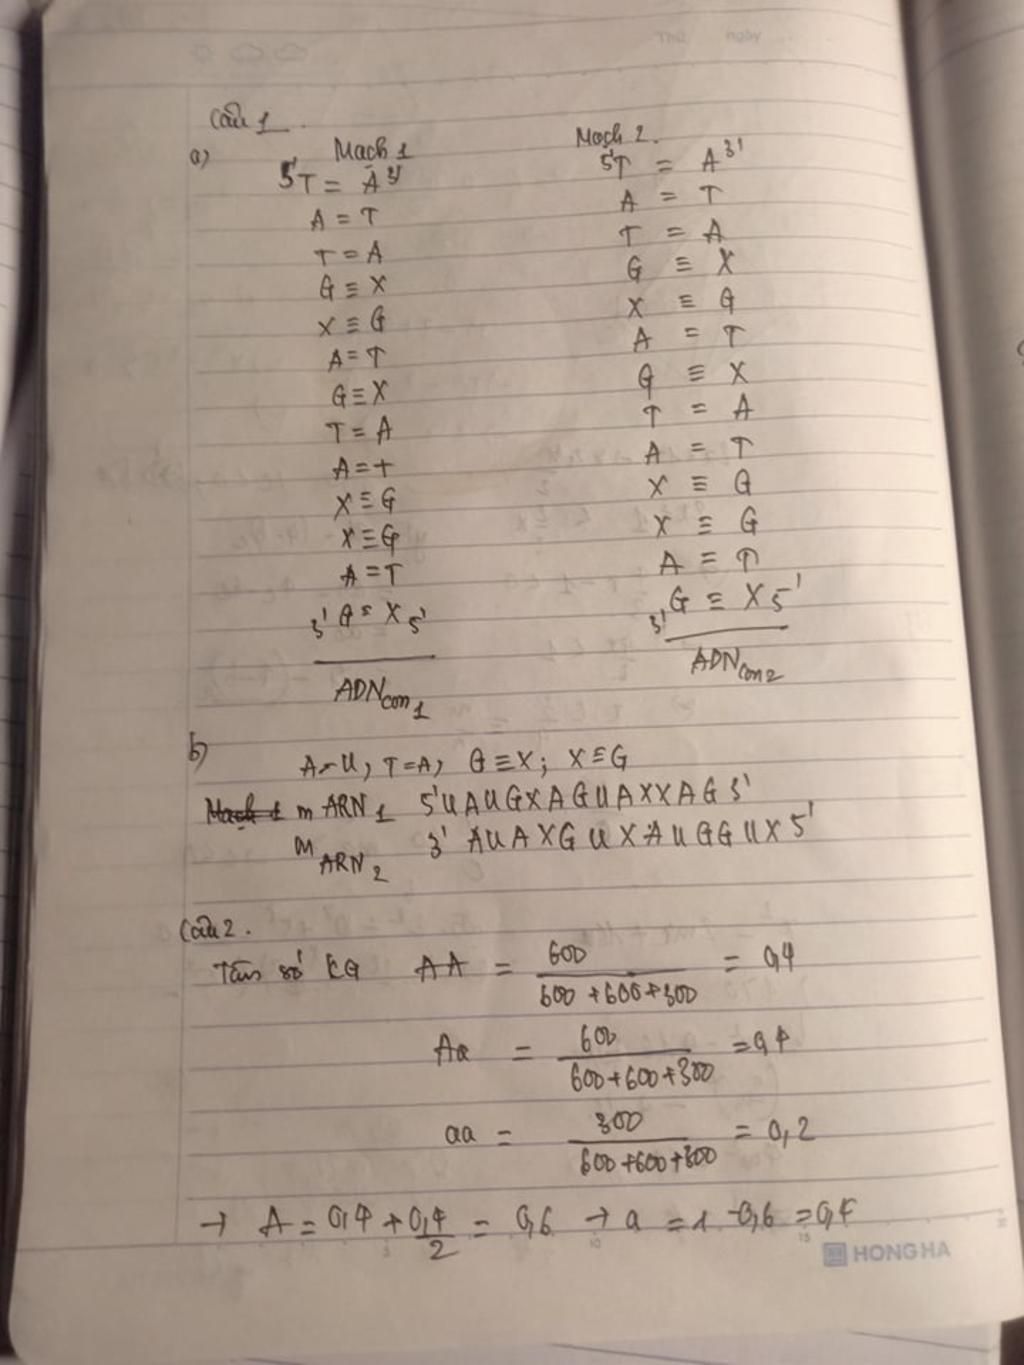 Thứ ngày
Câu 1.
a) Mạch 1 Mạch 2.
5'T = A 3' 5'T = A 3'
A = T A = T
T = A T = A
G ≡ X G ≡ X
X ≡ G X ≡ G
A = T A = T
G ≡ X G ≡ X
T = A T = A
A = T A = T
X ≡ G X ≡ G
X ≡ G X ≡ G
A = T A = T
3' G ≡ X 5' 3' G ≡ X 5'
ADN con 1 ADN con 2
b) A=U, T=A, G≡X; X≡G
Mạch 1 mARN 1 5'UAUGXAGUAXXAG 3'
mARN 2 3' AUAXGUXAUGGUX 5'
Câu 2.
Tần số KG AA = 600 / 600+600+300 = 0,4
Aa = 600 / 600+600+300 = 0,4
aa = 300 / 600+600+300 = 0,2
→ A = 0,4 + 0,4/2 = 0,6 → a = 1 - 0,6 = 0,4
HONG HA